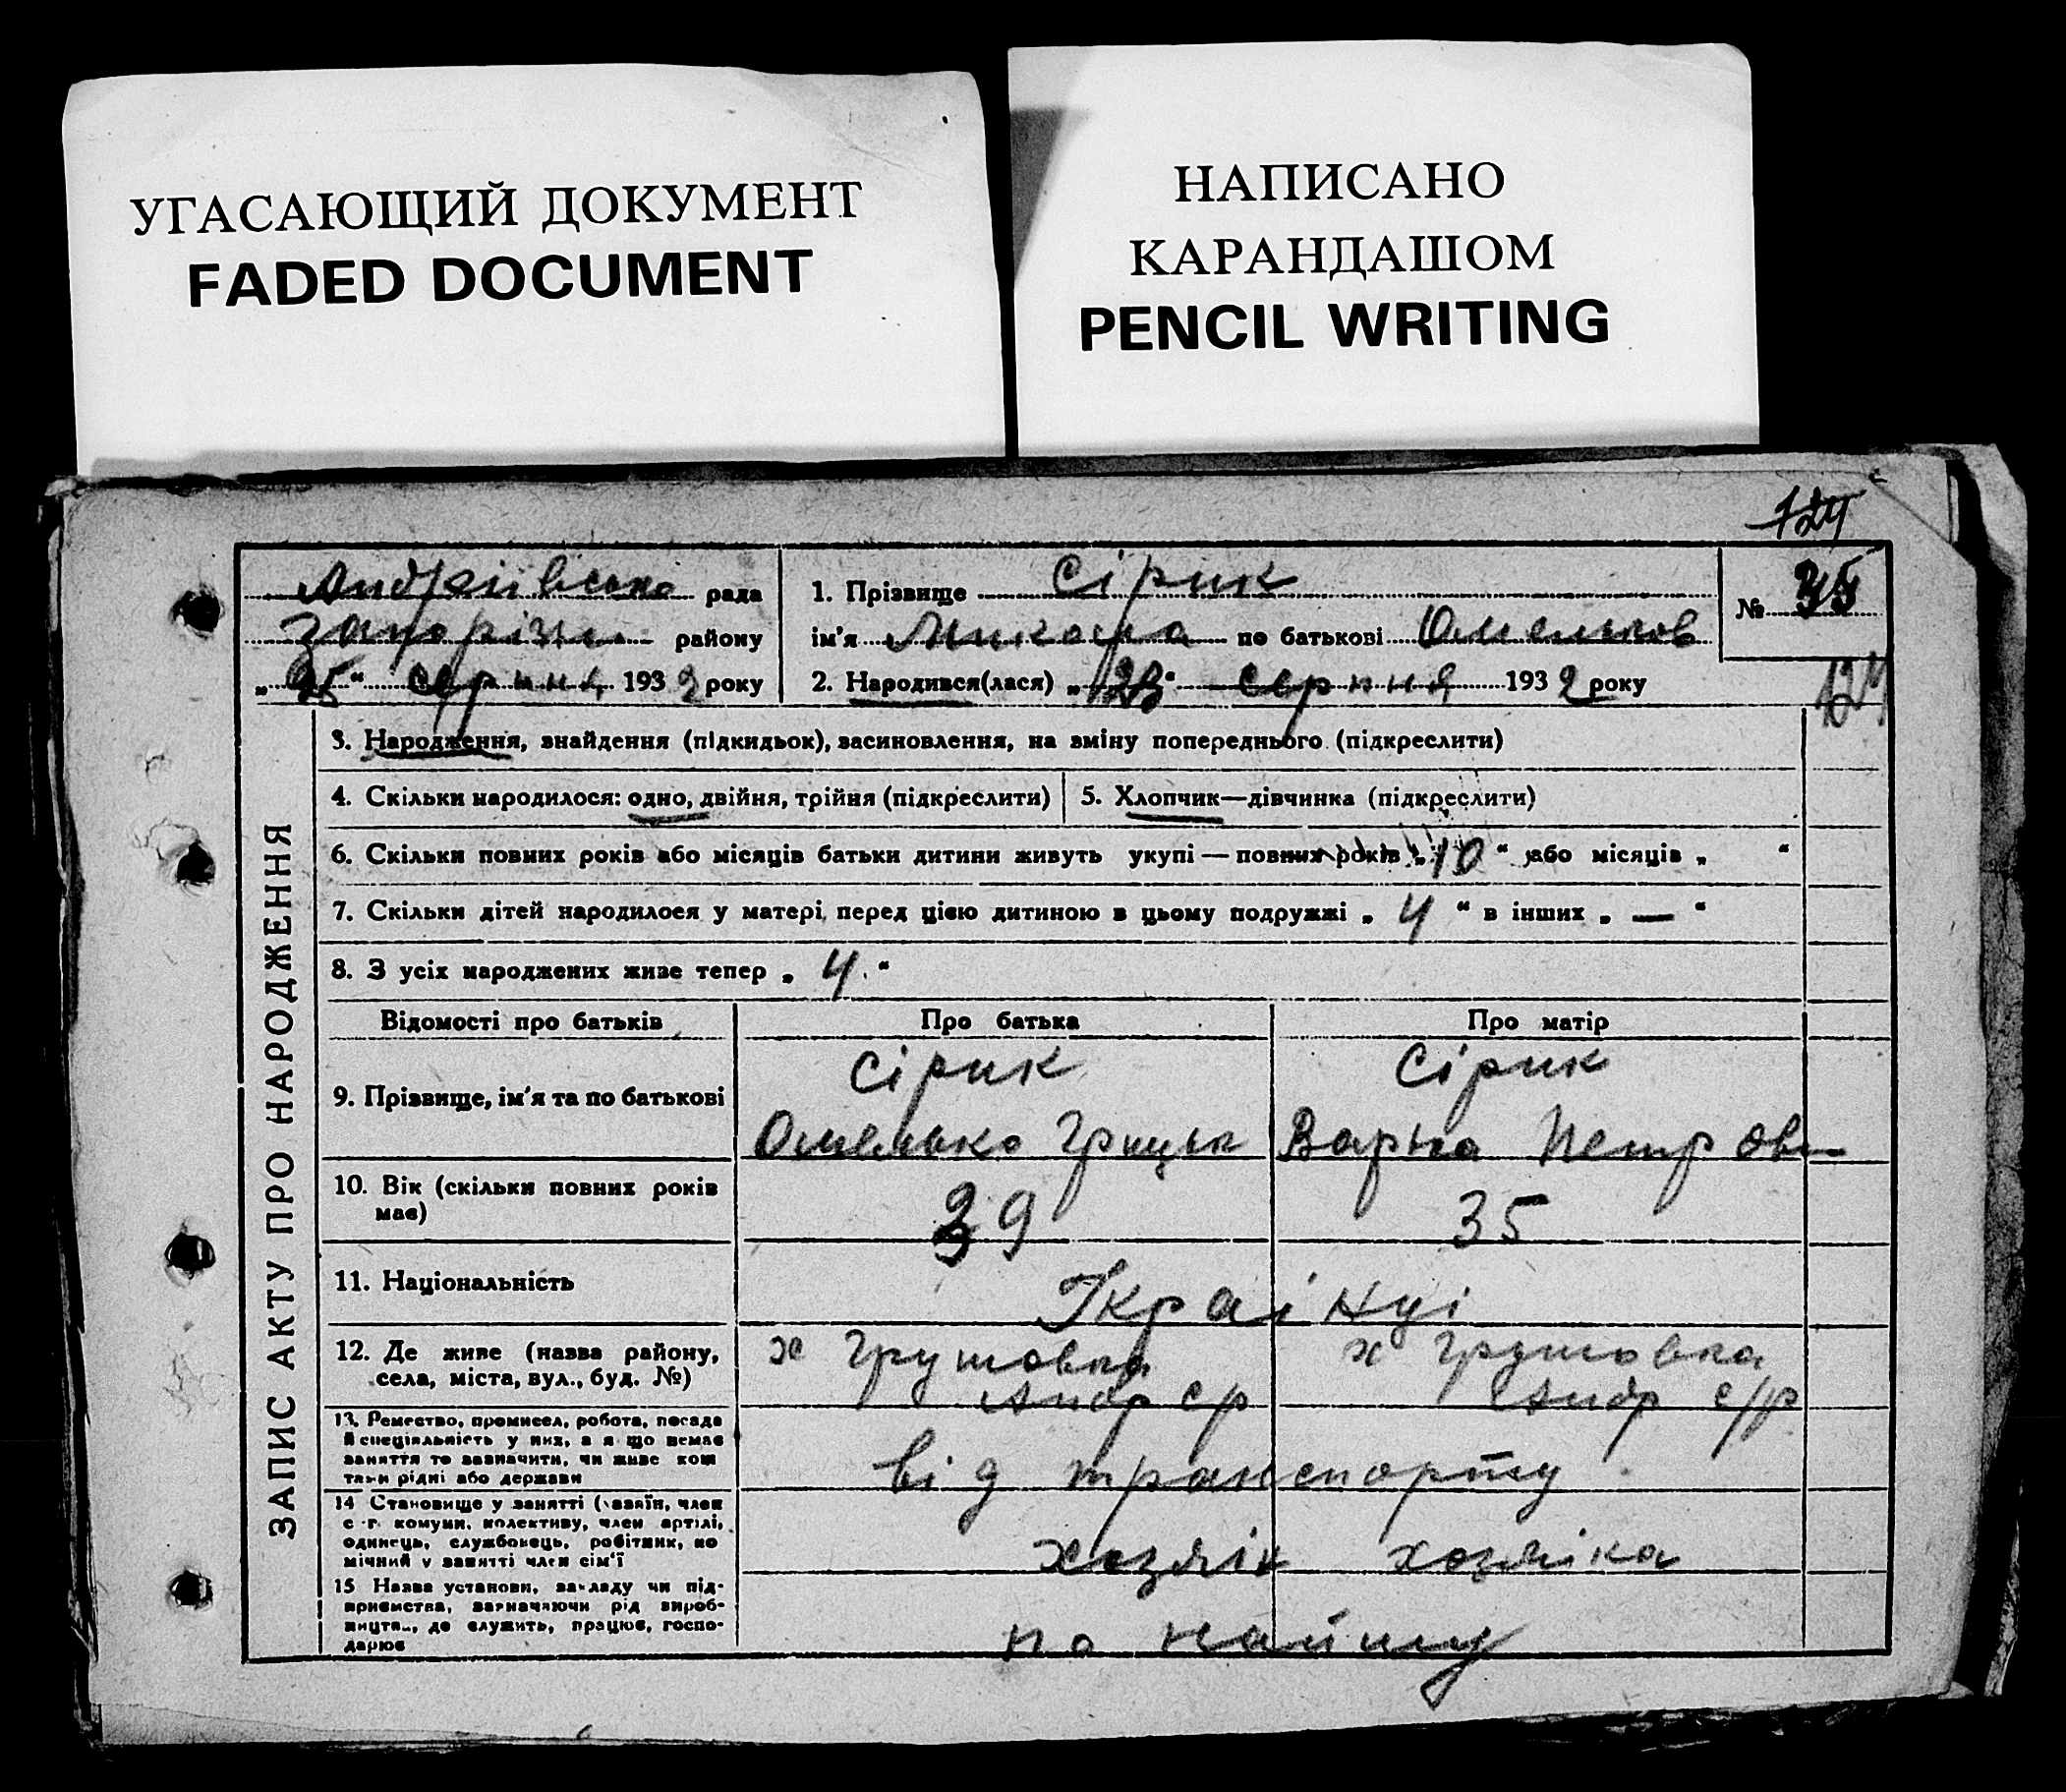 УГАСАЮЩИЙ ДОКУМЕНТ
FADED DOCUMENT
НАПИСАНО
КАРАНДАШОМ
PENCIL WRITING
124
Андріївська рада
Запорізьк. району
„25“ серпня 1932 року
1. Прізвище Сірик
ім'я Микола по батькові Омельков
2. Народився(лася) „23“ серпня 1932 року
№ 35
124
ЗАПИС АКТУ ПРО НАРОДЖЕННЯ
3. Народження, знайдення (підкидьок), засиновлення, на зміну попереднього (підкреслити)
4. Скільки народилося: одно, двійня, трійня (підкреслити)
5. Хлопчик—дівчинка (підкреслити)
6. Скільки повних років або місяців батьки дитини живуть укупі — повних років „10“ або місяців „ “
7. Скільки дітей народилося у матері перед цією дитиною в цьому подружжі „4“ в інших „—“
8. З усіх народжених живе тепер „4.“
Відомості про батьків Про батька Про матір
9. Прізвище, ім'я та по батькові
Сірик
Омелько Грицьк
Сірик
Варька Петрови
10. Вік (скільки повних років має)
39
35
11. Національність
Українці
12. Де живе (назва району,
села, міста, вул., буд. №)
х Грушовка
Андр с/р
х Грушовка
Андр с/р
13. Ремество, промисел, робота, посада
й спеціяльність у них, а якщо немає
заняття то зазначити, чи живе кош
тами рідні або держави
від транспорту
14 Становище у занятті (хазяїн, член
с.-г. комуни, колективу, член артілі,
одинець, службовець, робітник, по
мічний у занятті член сім'ї
хозяін хозяіка
15 Назва установи, закладу чи під-
приємства, зазначаючи рід вироб-
ництв., де служить, працює, госпо-
дарює
по найму